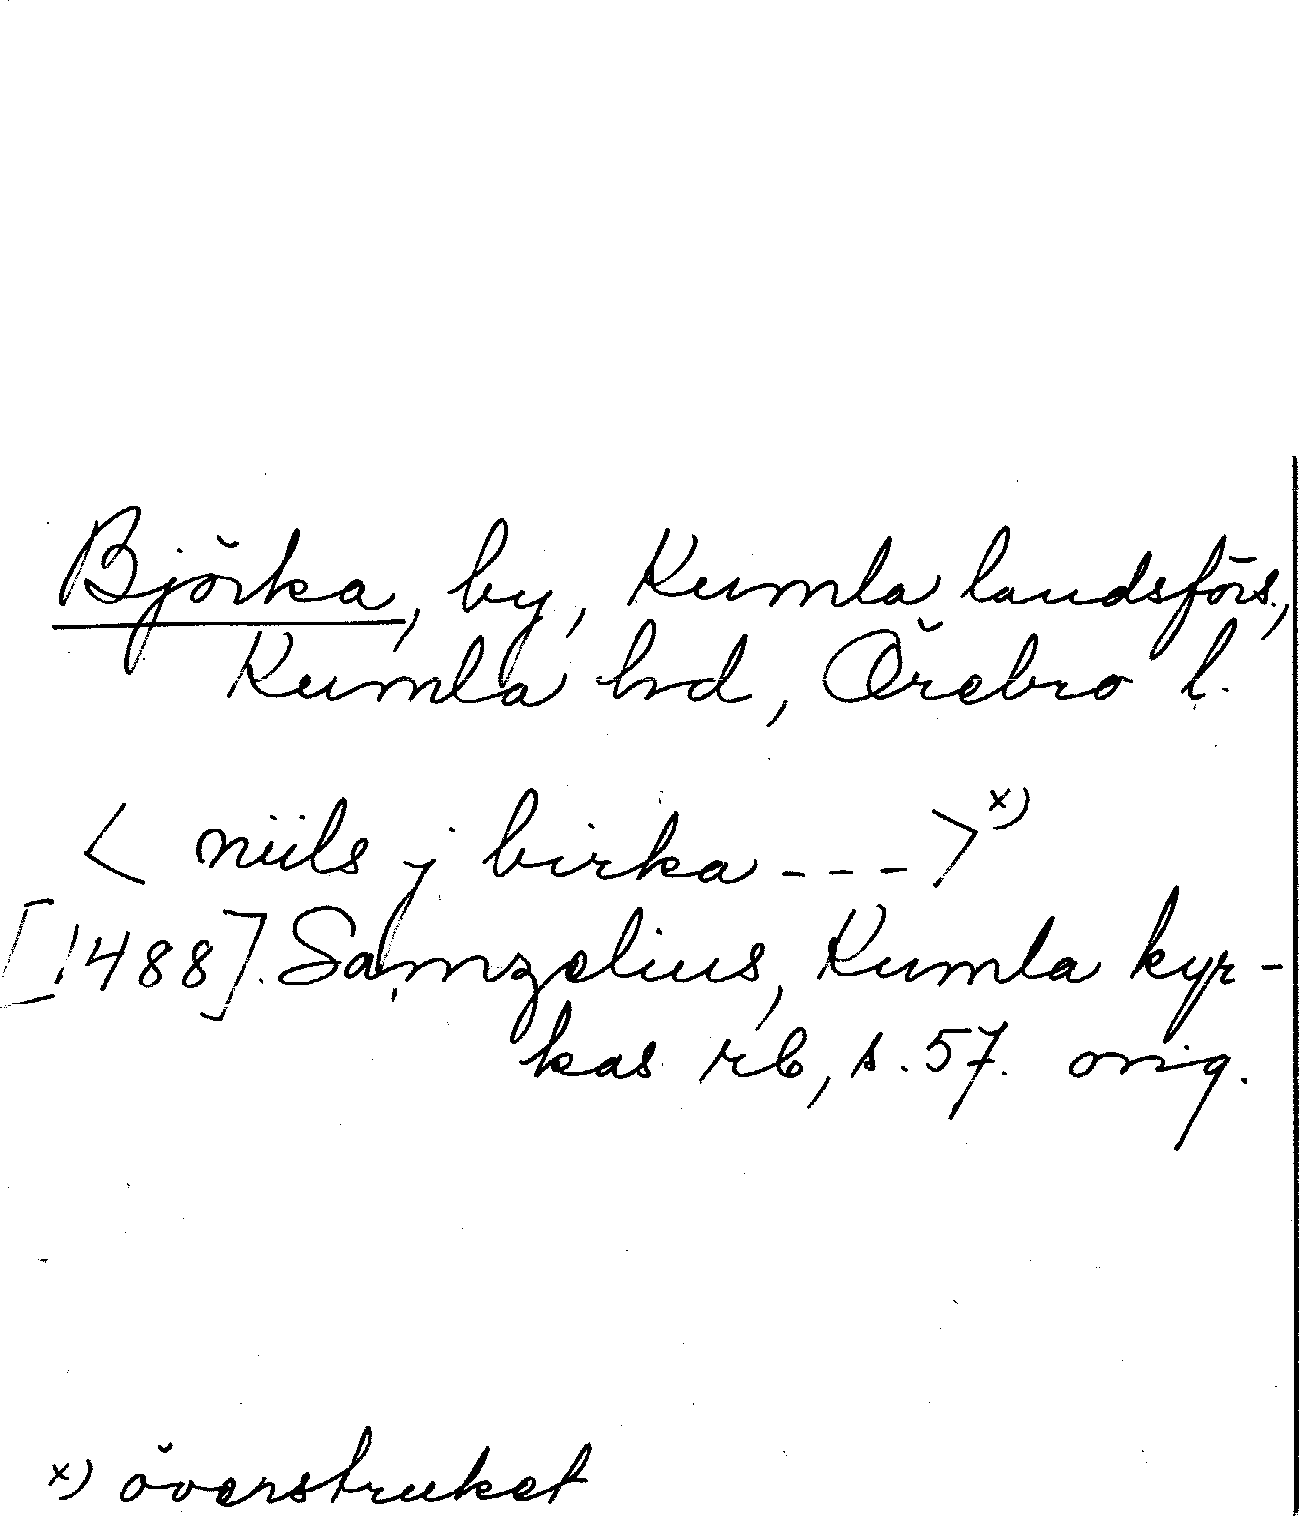 Björka, by, Kumla landsförs.,
Kumla hd, Örebro l.
< niils j birka - - - > x)
[1488]. Samzelius, Kumla kyr-
kas rb, s. 57. orig.
x) överstruket